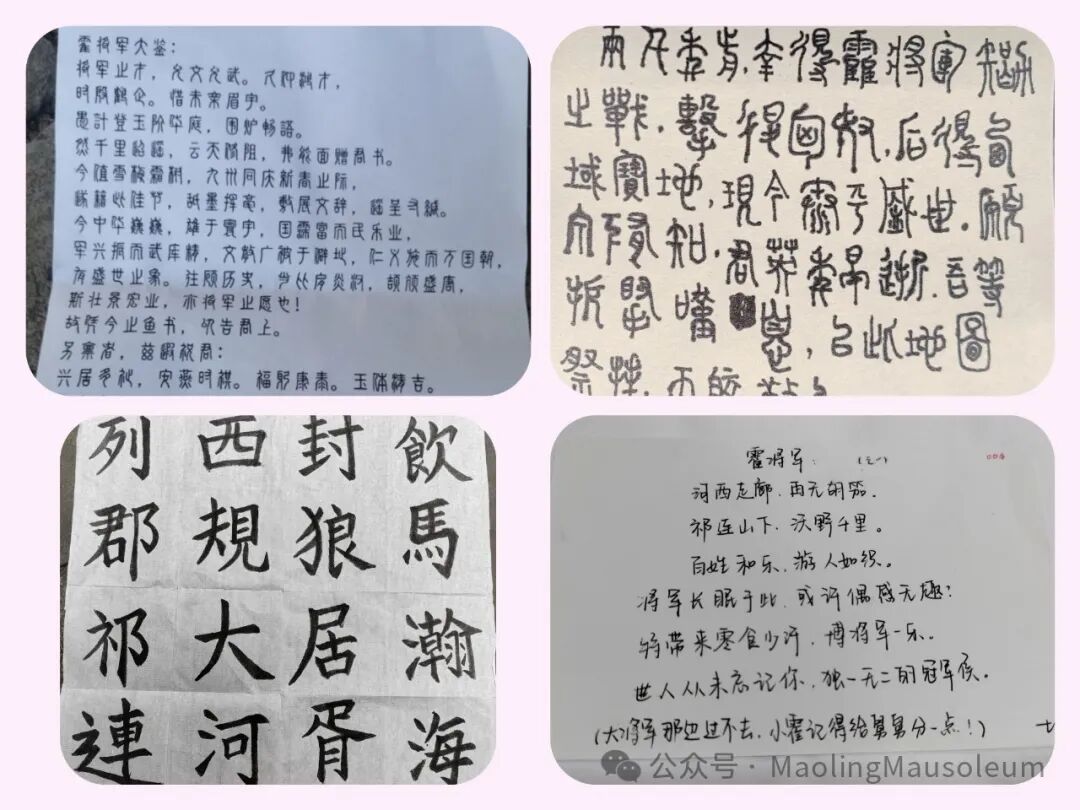 霍将军大鉴：
将军之才，允文允武。久仰鸿才，
时殷鹤企。惜未亲眉宇。
愚计登玉阶华庭，围炉畅语。
然千里迢遥，云天隔阻，弗能面赠君书。
今值雪梅霜朝，九州同庆新春之际，
聊藉此佳节，舐墨挥毫，敷展文辞，谨呈寸缄。
今中华巍巍，雄于寰宇，国富而民乐业，
军兴振而武库精，文教广被于僻地，仁义施而万国朝，
有盛世之象。往顾历史，当比肩炎汉，颉颃盛唐，
斯壮景宏业，亦将军之愿也！
故凭今之鱼书，叩告君上。
另禀者，兹谨祝君：
兴居多祉，安燕时祺。福躬康泰。玉体精吉。
兩千年前,幸得霍將軍
之戰,擊得匈奴,后得西
域寶地,現今泰平盛世.願
知,君英年早逝.吾等
恩,以此地圖
飲馬瀚海
封狼居胥
西規大河
列郡祁連
霍将军：
河西走廊，再无胡笳。
祁连山下，沃野千里。
百姓和乐，游人如织。
将军长眠于此，或许偶感无趣；
特带来零食少许，博将军一乐。
世人从未忘记你，独一无二的冠军侯。
（大将军那边过不去，小霍记得给舅舅分一点！）
公众号 · MaolingMausoleum